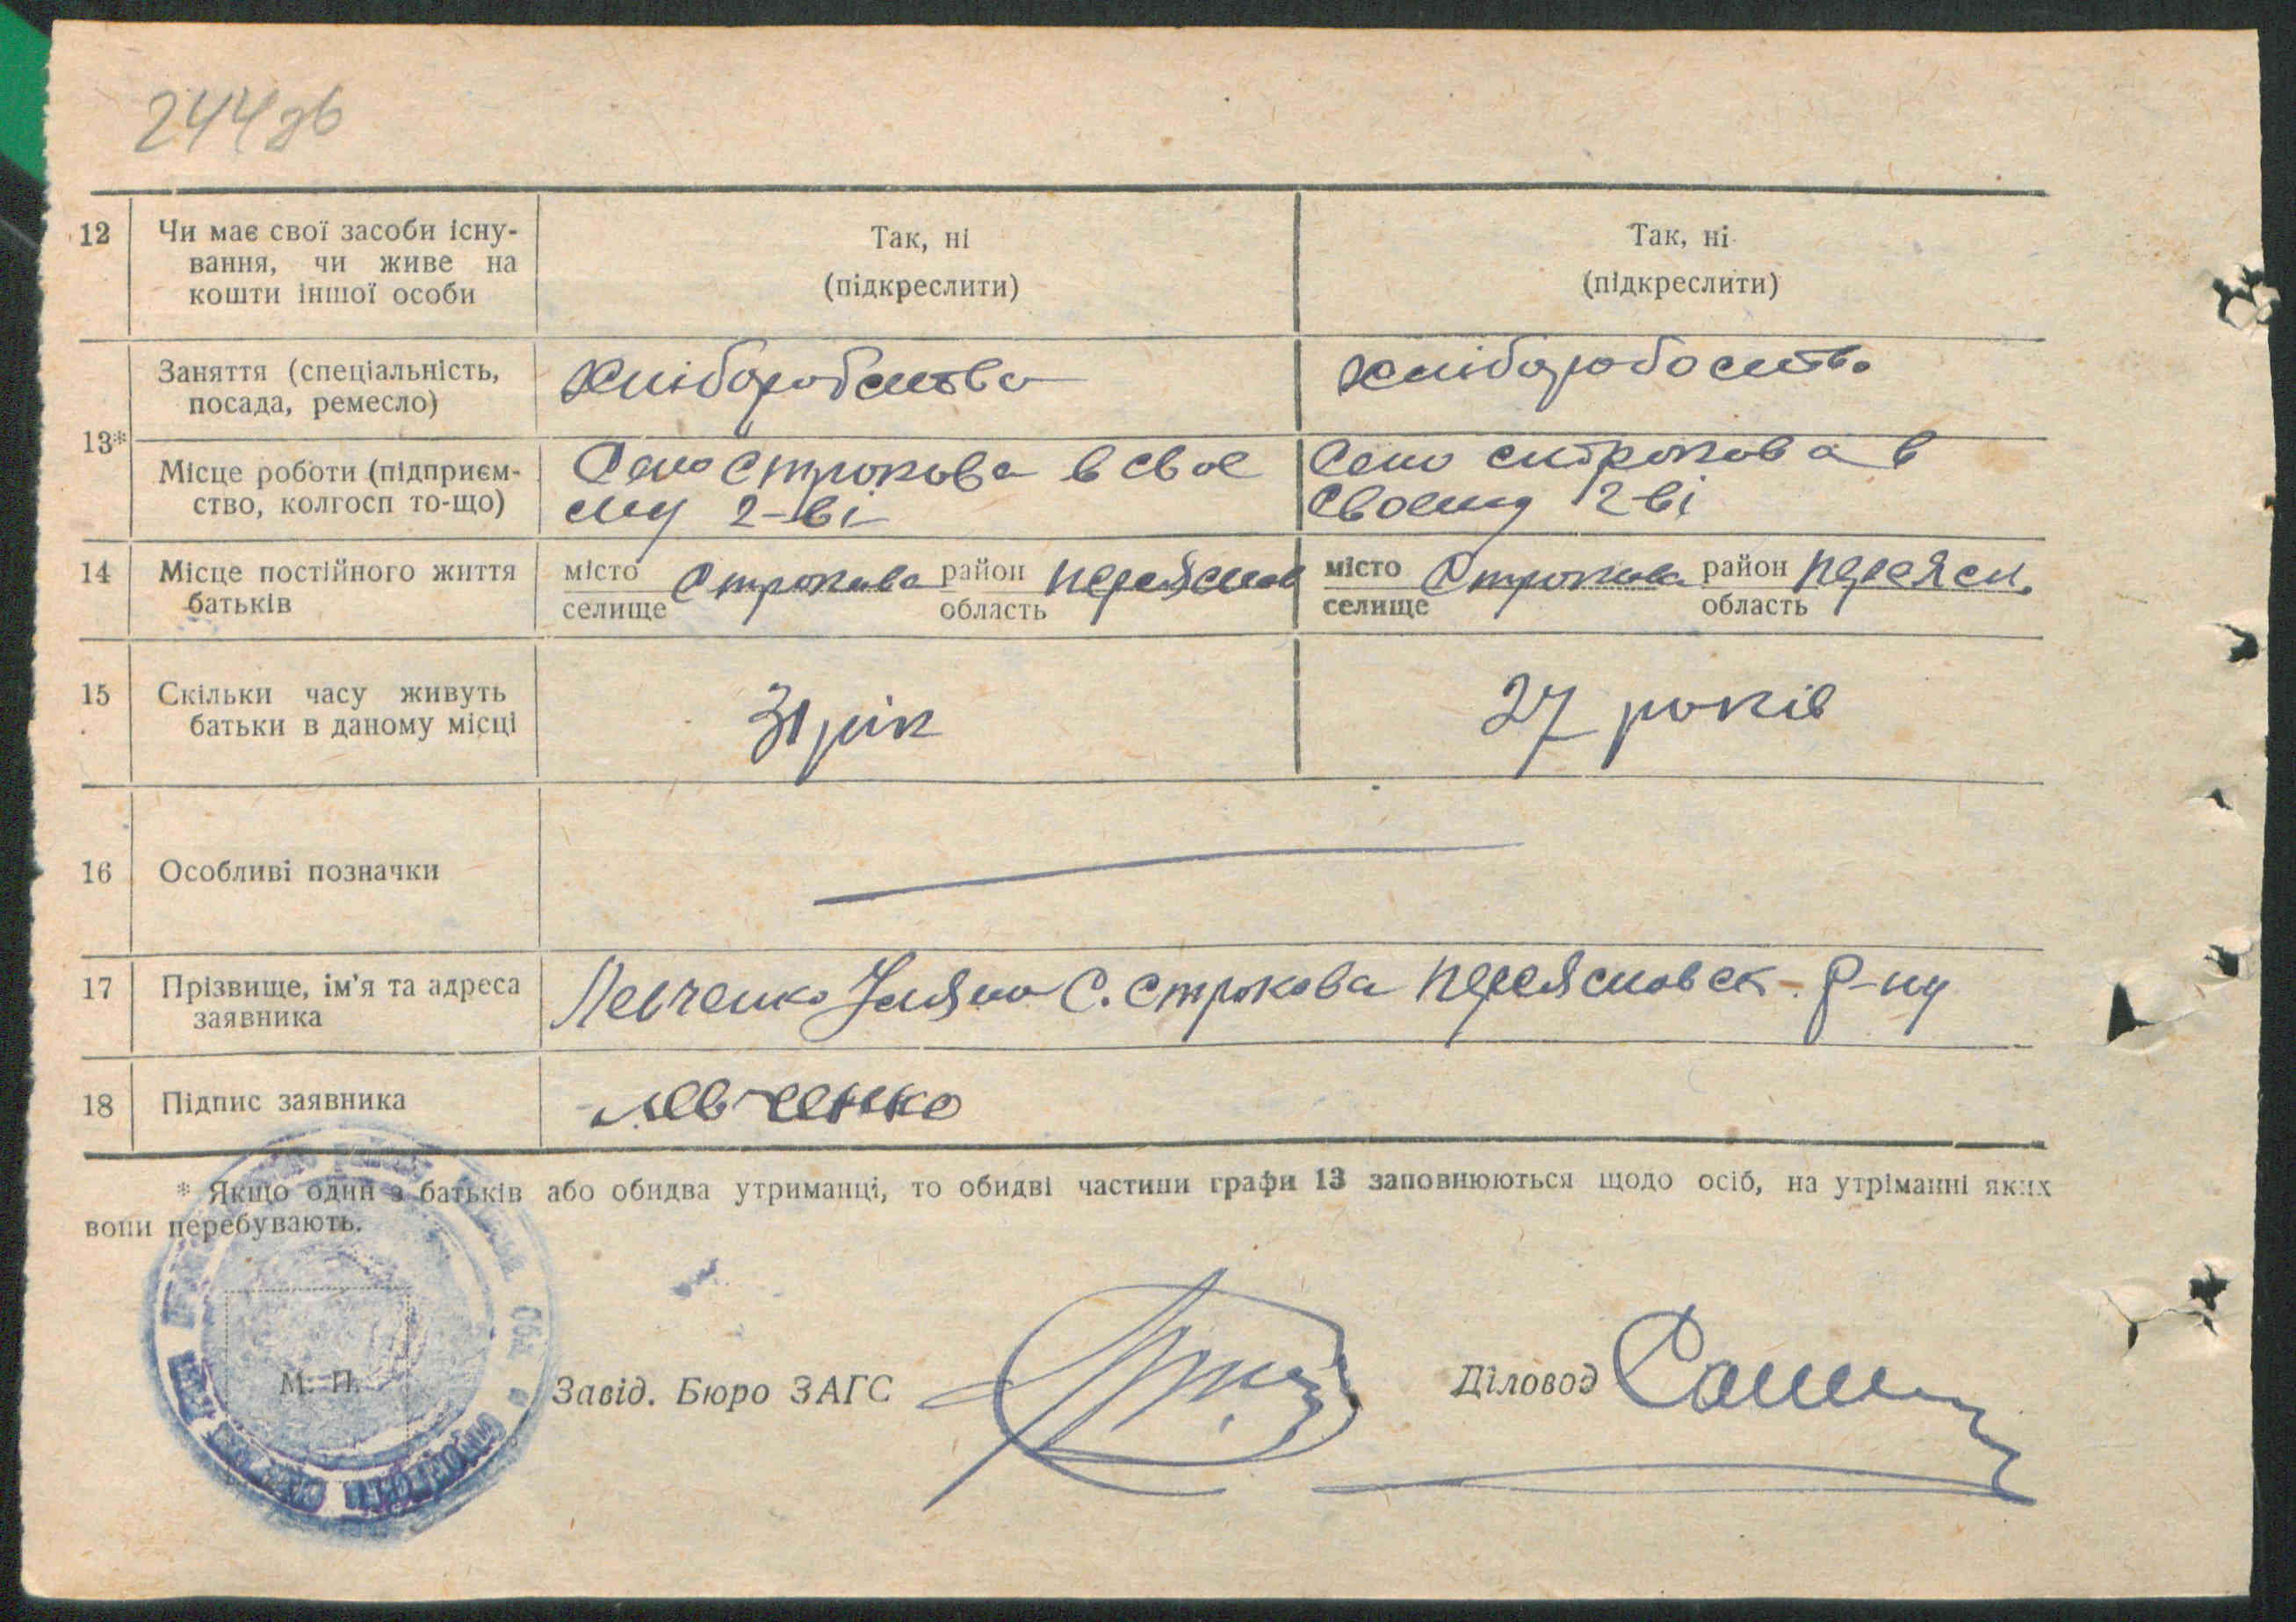 244зв
12 Чи має свої засоби існу- Так, ні Так, ні
вання, чи живе на (підкреслити) (підкреслити)
кошти іншої особи
13* Заняття (спеціальність, хліборобства хлібороботство
посада, ремесло)
Місце роботи (підприєм- Село Строкова в свое Село Строкова в
ство, колгосп то-що) му г-ві своему г-ві
14 Місце постійного життя місто Строкова район Переяслов місто Строкова район Переясл.
батьків селище область селище область
15 Скільки часу живуть 31 рік 27 років
батьки в даному місці
16 Особливі позначки
17 Прізвище, ім'я та адреса Левченко Уляна С. Строкова Переясловск. р-ну
заявника
18 Підпис заявника Левченко
* Якщо один з батьків або обидва утриманці, то обидві частини графи 13 заповнюються щодо осіб, на утріманні яких
вони перебувають.
М. П.
Завід. Бюро ЗАГС Діловод